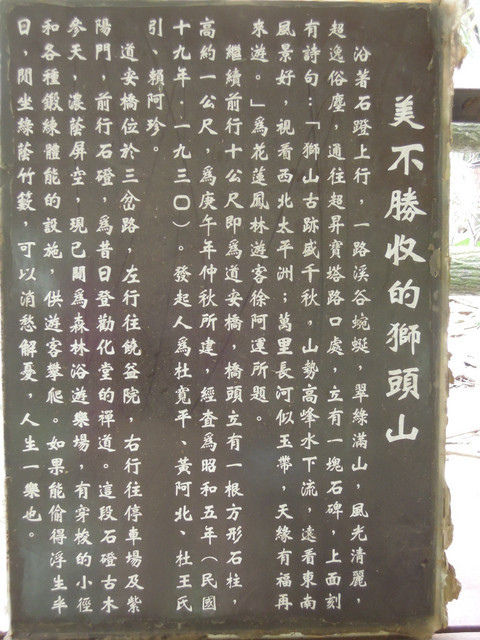 美不勝收的獅頭山
沿著石蹬上行，一路溪谷蜿蜒，翠綠滿山，風光清麗，
超逸俗塵，通往超昇寶塔路口處，立有一塊石碑，上面刻
有詩句：「獅山古跡盛千秋，山勢高峰水下流，遠看東南
風景好，視看西北太平洲；萬里長河似玉帶，天緣有福再
來遊。」為花蓮鳳林遊客徐阿運所題。
繼續前行十公尺即為道安橋，橋頭立有一根方形石柱，
高約一公尺，為庚午年仲秋所建，經查為昭和五年（民國
十九年．一九三〇）。發起人為杜寬平、黃阿北、杜王氏
引、賴阿珍。
道安橋位於三岔路，左行往饒益院，右行往停車場及紫
陽門，前行石磴，為昔日登勸化堂的禪道。這段石磴古木
參天，濃蔭屏空，現已闢為森林浴遊樂場，有穿梭的小徑
和各種鍛練體能的設施，供遊客攀爬。如果能偷得浮生半
日，閒坐綠蔭竹籔，可以消愁解憂，人生一樂也。